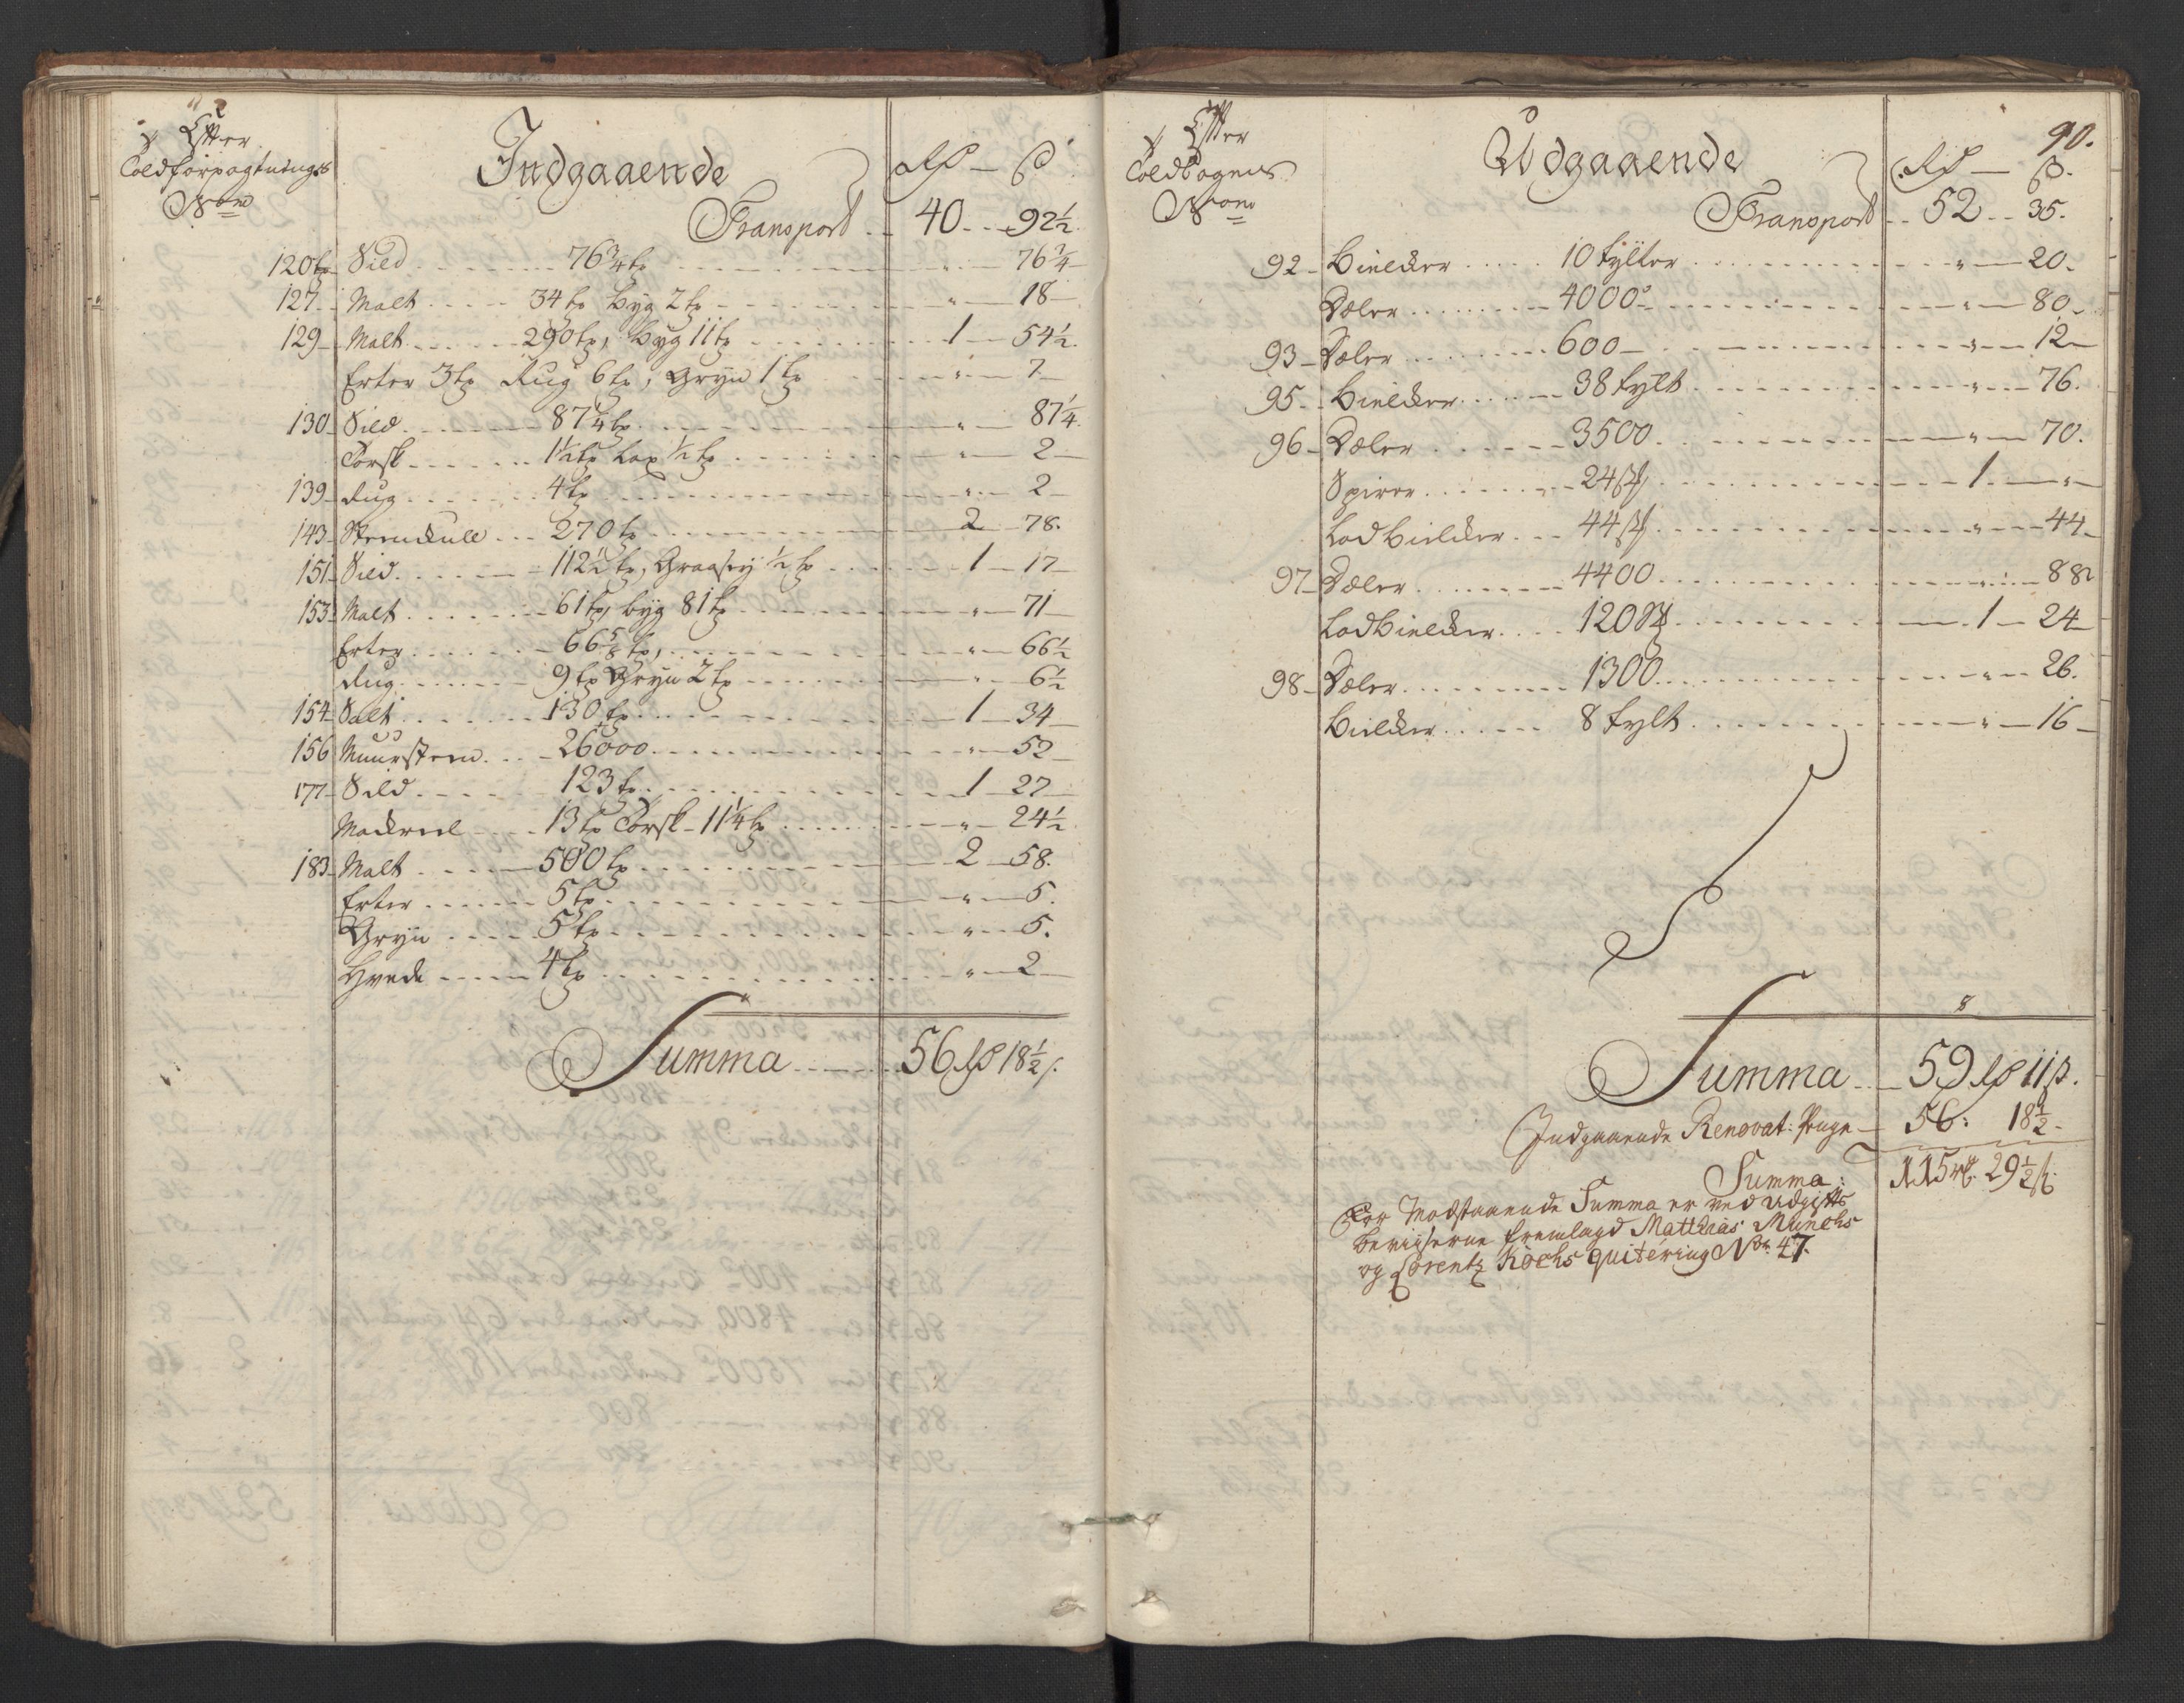 Efter
Toldforpagtnings
No
Indgaaende
Rd — ß
Transport .. 40 .. 92½
120 Sild ..... 76¾ tr ..... " — 76¾
127 Malt ..... 34 tr Byg 2 tr ..... " — 18
129 Malt ..... 290 tr, Byg 11 tr ..... 1 — 54½
Erter 3 tr Rug 6 tr, Gryn 1 tr ..... " — 7
130 Sild ..... 87¼ tr ..... " — 87¼
Torsk ..... 1½ tr Lax ½ tr ..... " — 2
139 Rug ..... 4 tr ..... " — 2
143 Steenkull ... 270 tr ..... 2 — 78.
151 Sild ..... 112½ tr, Graasej ½ tr ..... 1 — 17
153 Malt ..... 61 tr, Byg 81 tr ..... " — 71
Erter ..... 66⅝ tr, ..... " — 66½
Rug ..... 9 tr Gryn 2 tr ..... " — 6½
154 Salt ..... 130 tr ..... 1 — 34
156 Muursteen ... 26000 ..... " — 52
177 Sild ..... 123 tr ..... 1 — 27
Mackreel ..... 13 tr Torsk 11¼ tr ..... " — 24½
183 Malt ..... 500 tr ..... 2 — 58.
Erter ..... 5 tr ..... " — 5.
Gryn ..... 5 tr ..... " — 5.
Hvede ..... 4 tr ..... " — 2
Summa ..... 56 Rd 18½ ß.
90.
Efter
Toldbogens
No
Udgaaende
Rd — ß.
Transport .. 52 .. 35.
92 Bielcker ..... 10 tylter ..... " — 20.
Dæler ..... 4000 ..... " — 80.
93 Dæler ..... 600 ..... " — 12
95 Bielcker ..... 38 tylt ..... " — 76.
96 Dæler ..... 3500 ..... " — 70.
Spirer ..... 24 st ..... 1 — "
Lodbielcker ... 44 st ..... " — 44
97 Dæler ..... 4400 ..... " — 88
Lodbielcker .... 120 st ..... 1 — 24
98 Dæler ..... 1300 ..... " — 26.
Bielcker ..... 8 tylt ..... " — 16
Summa .. 59 Rd 11 ß.
Indgaaende Renovat: Penge — 56: 18½
Summa: 115 rd 29½ ß.
For Modstaaende Summa er ved Udgifts
beviiserne fremlagd Matthias Münchs
og Lorentz Kochs quitering No 47.